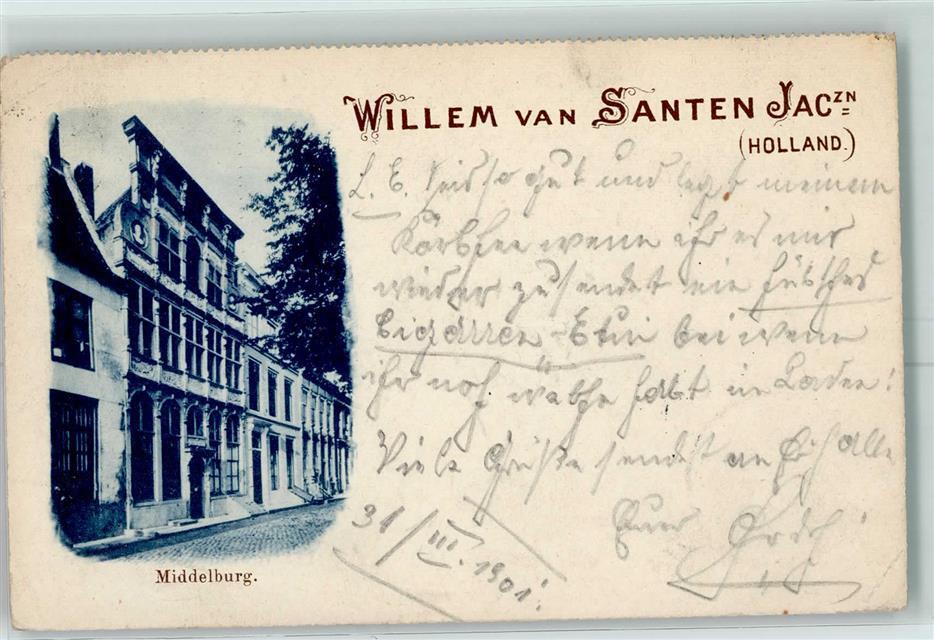 WILLEM VAN SANTEN JACZN
(HOLLAND.)
L. E. Seid so gut und legt meinem
Körbchen wenn ihr es mir
wieder zusendet ein hübsches
Cigarren-Etui bei wenn
ihr noch welche habt im Laden!
Viele Grüße sendet an Euch alle
Euer
31/III. 1901.
Middelburg.